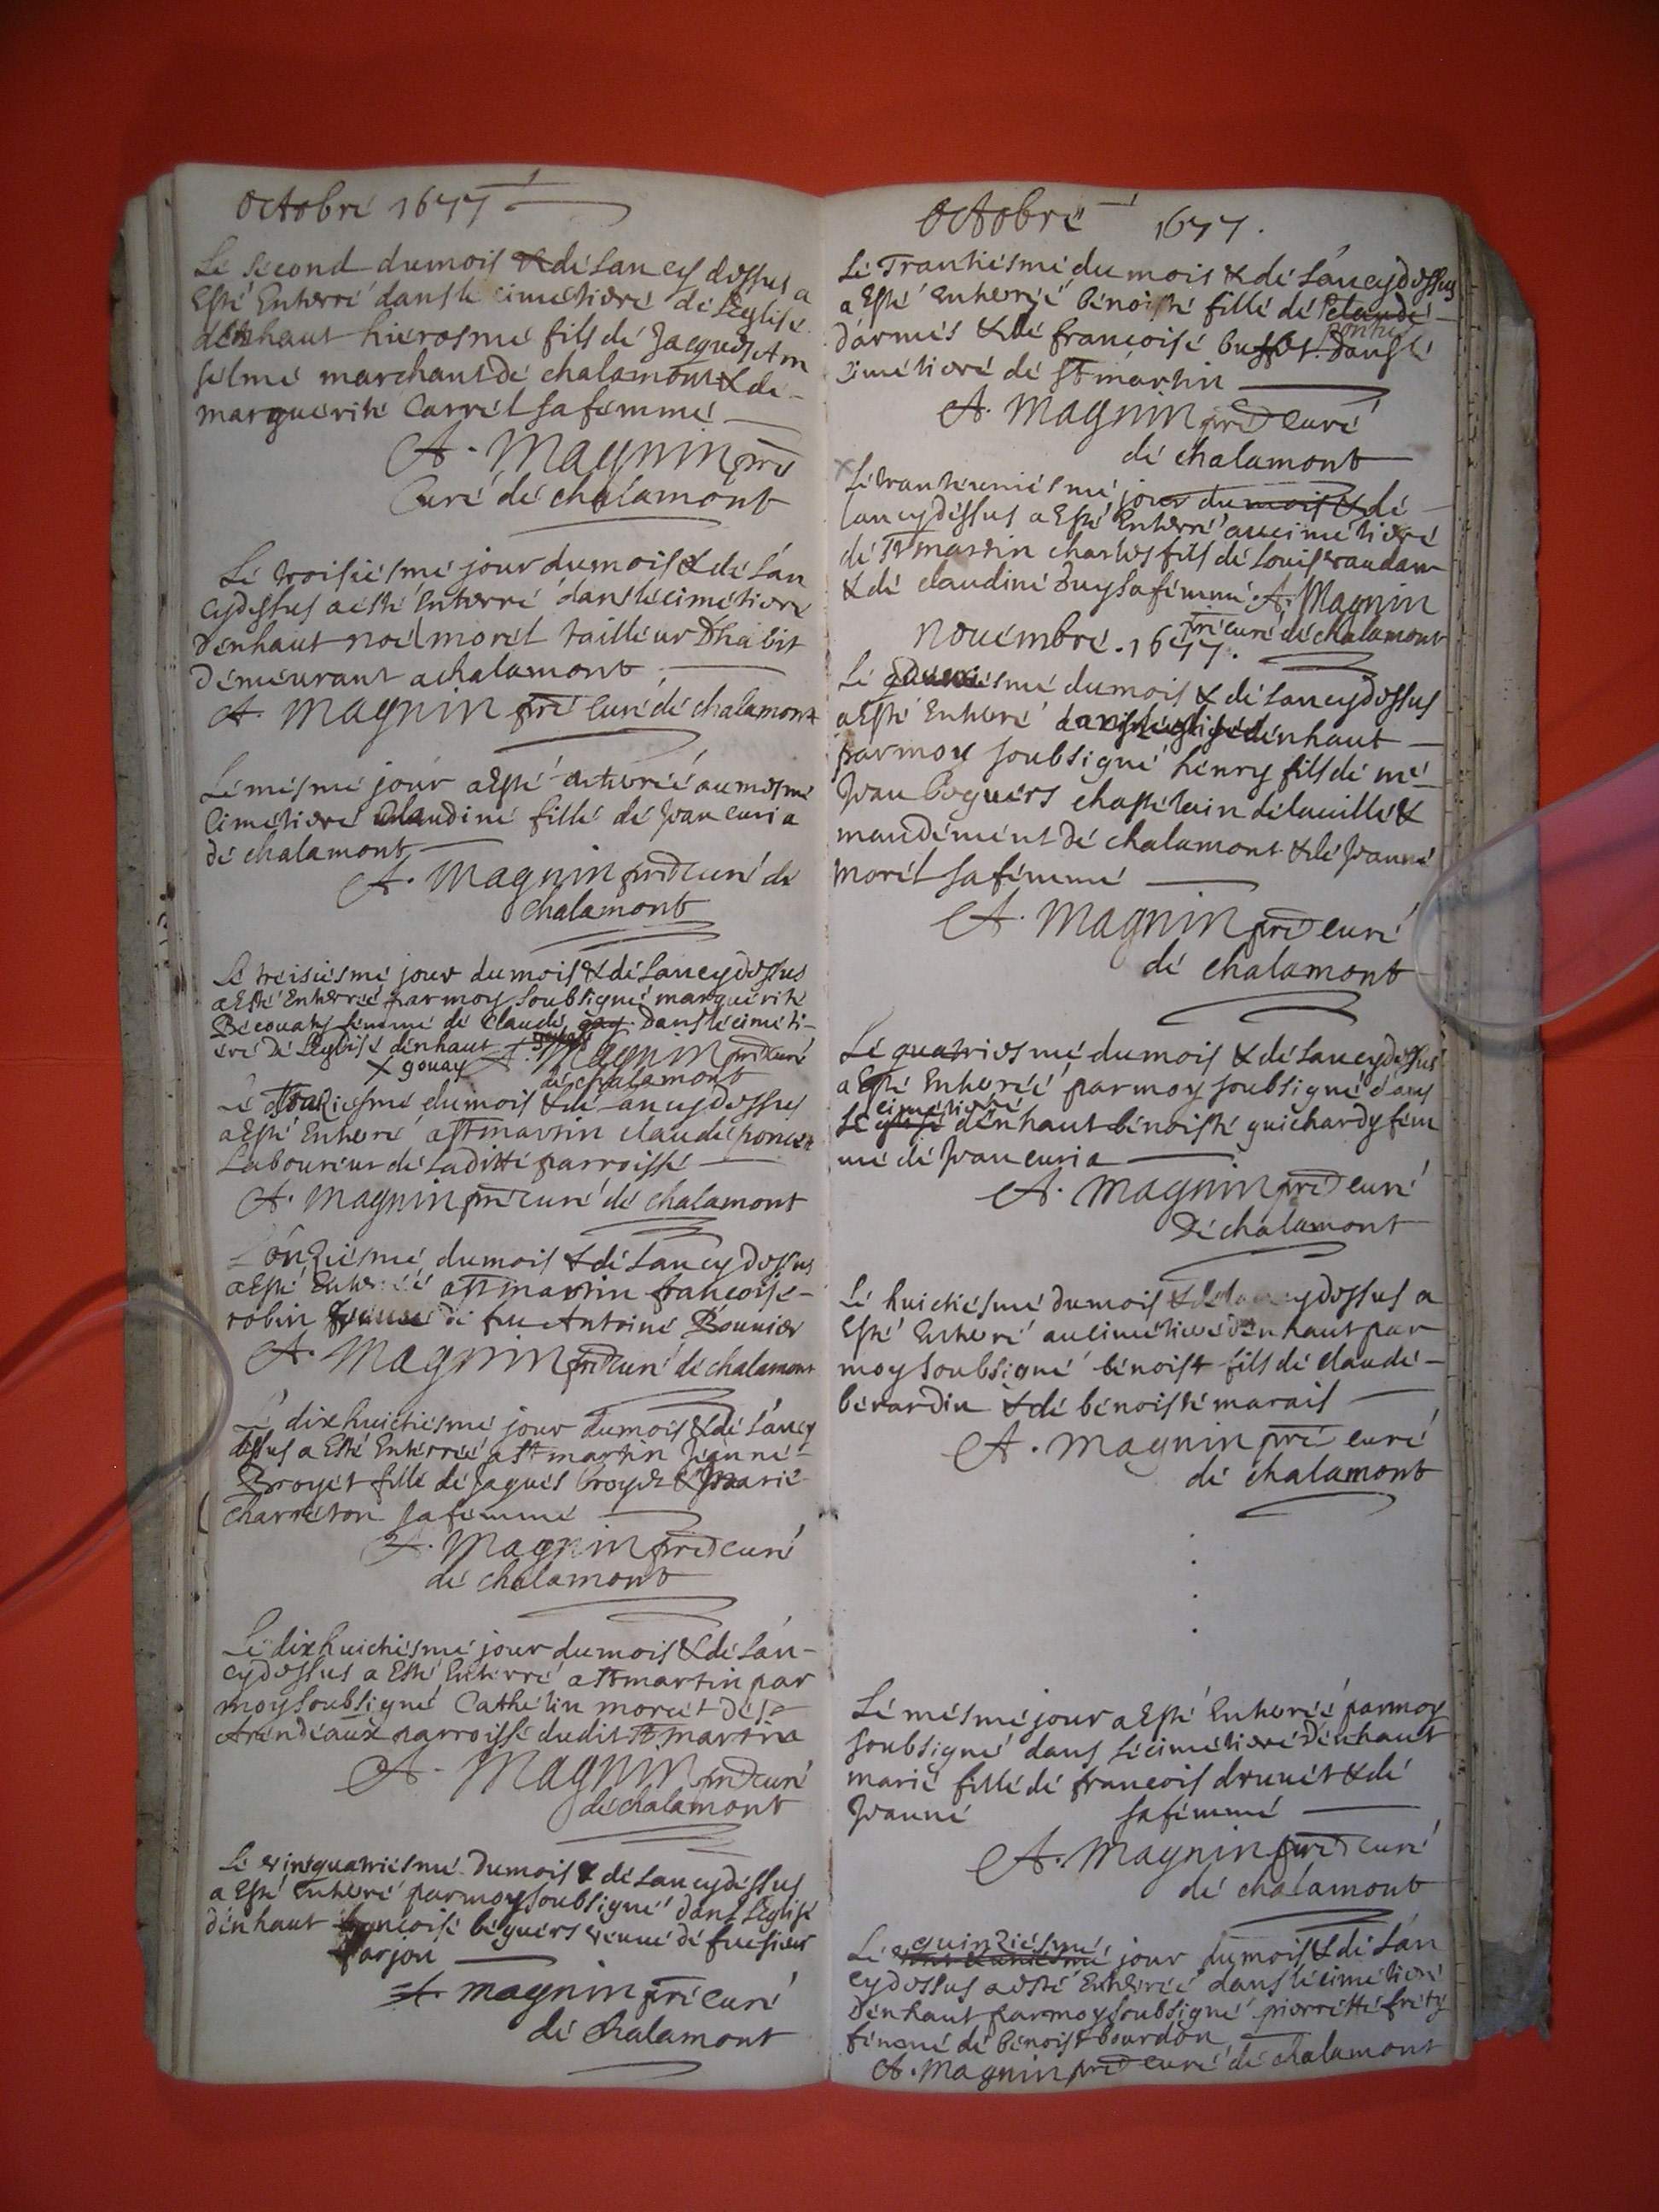 Octobre 1677
Le second du mois & de Lan cy dessus a
Esté Enterré dans le cimetiere de Léglise
dénhaut hierosme fils de Jacques An
selme marchant de chalamont & de
marguerite Carrel sa femme
A. Magnin pre
Curé de chalamont
Le troisiésme jour du mois & de Lan
cy dessus a esté Enterré dans le cimetiere
denhaut noel morel tailleur Dhabit
demeurant a chalamont
A. Magnin pre Curé de chalamont
Le mesme jour a Esté enterréé au mesme
Cimetiere Claudine fille de Jean curia
de chalamont
A. Magnin pre curé de
chalamont
Le treisiésme jour du mois & de Lan cy dessus
a Esté Enterréé par moy soubsigné marguerite
femme de Claude dans le cimeti-
ere de Léglise dénhaut A. Magnin pre curé
X gouay de chalamont
Le du mois & de Lan cy dessus
a Esté Enterré a st martin claude poncet
Laboureur de Laditte parroisse
A. Magnin pre curé de chalamont
L'onziésme du mois & de Lan cy dessus
a Esté Enterréé a st martin francoise
robin de feu Antoine Bouvier
A. Magnin pre curé de chalamont
Le dixhuictiésme jour du mois & de Lan cy
dessus a Esté Enterréé a st martin Jeanne
Broyet fille de Jaques broyet & Marie
charreton sa femme
A. Magnin pre curé
de chalamont
Le dixhuictiésme jour du mois & de Lan
cy dessus a Esté Enterré a st martin par
moy soubsigné Cathelin moret de
parroisse dudit st martin
A. Magnin pre curé
de chalamont
Le vintquatriésme du mois & de Lan cy dessus
a Esté Enterré par moy soubsigné dans L'eglise
dénhaut francoise béguers veuve de feu sieur
farjon
A. magnin pre curé
de chalamont
Octobre 1677.
Le Trantiésme du mois & de Lan cy dessus
a Esté enterréé bénoiste fille de claude
pontus
darmes & de francoise dans le
cimetiere de st martin
A. Magnin pre curé
de chalamont
Le tranteuniésme jour du mois & de
lan cy dessus a Esté Enterré au cimetiere
de st martin charles fils de Louis raudan
& de claudine Duy sa femme A. Magnin
pre curé de chalamont
Nouembre. 1677.
Le du mois & de Lan cy dessus
a Esté Enterré dans léglise dénhaut
par moy soubsigné henry fils de me
Jean Béguers chastelain de la uille &
mandement de chalamont & de Jeanne
morel sa femme
A. Magnin pre curé
de chalamont
Le quatriesme du mois & de Lan cy dessus
a Esté Enterréé par moy soubsigné dans
cimetiere
Le glise dénhaut bénoiste guichardy fem
me de Jean curia
A. Magnin pre curé
De chalamont
Le huictiésme du mois & de lan cy dessus a
Esté Enterré au cimetiere dénhaut par
moy soubsigné benoist fils de claude
berardin & de bénoiste marais
A. Magnin pre curé
de chalamont
Le mesme jour a Esté Enterréé par moy
soubsigné dans Le cimetiere Dénhaut
marie fille de francois druuet & de
Jeanne sa femme
A. Magnin pre curé
de chalamont
quinziésme
Le jour du mois & de Lan
cy dessus a esté Enterréé dans le cimetiere
Dénhaut par moy soubsigné pierrette frety
femme de benoist bourdon
A. Magnin pre curé de chalamont